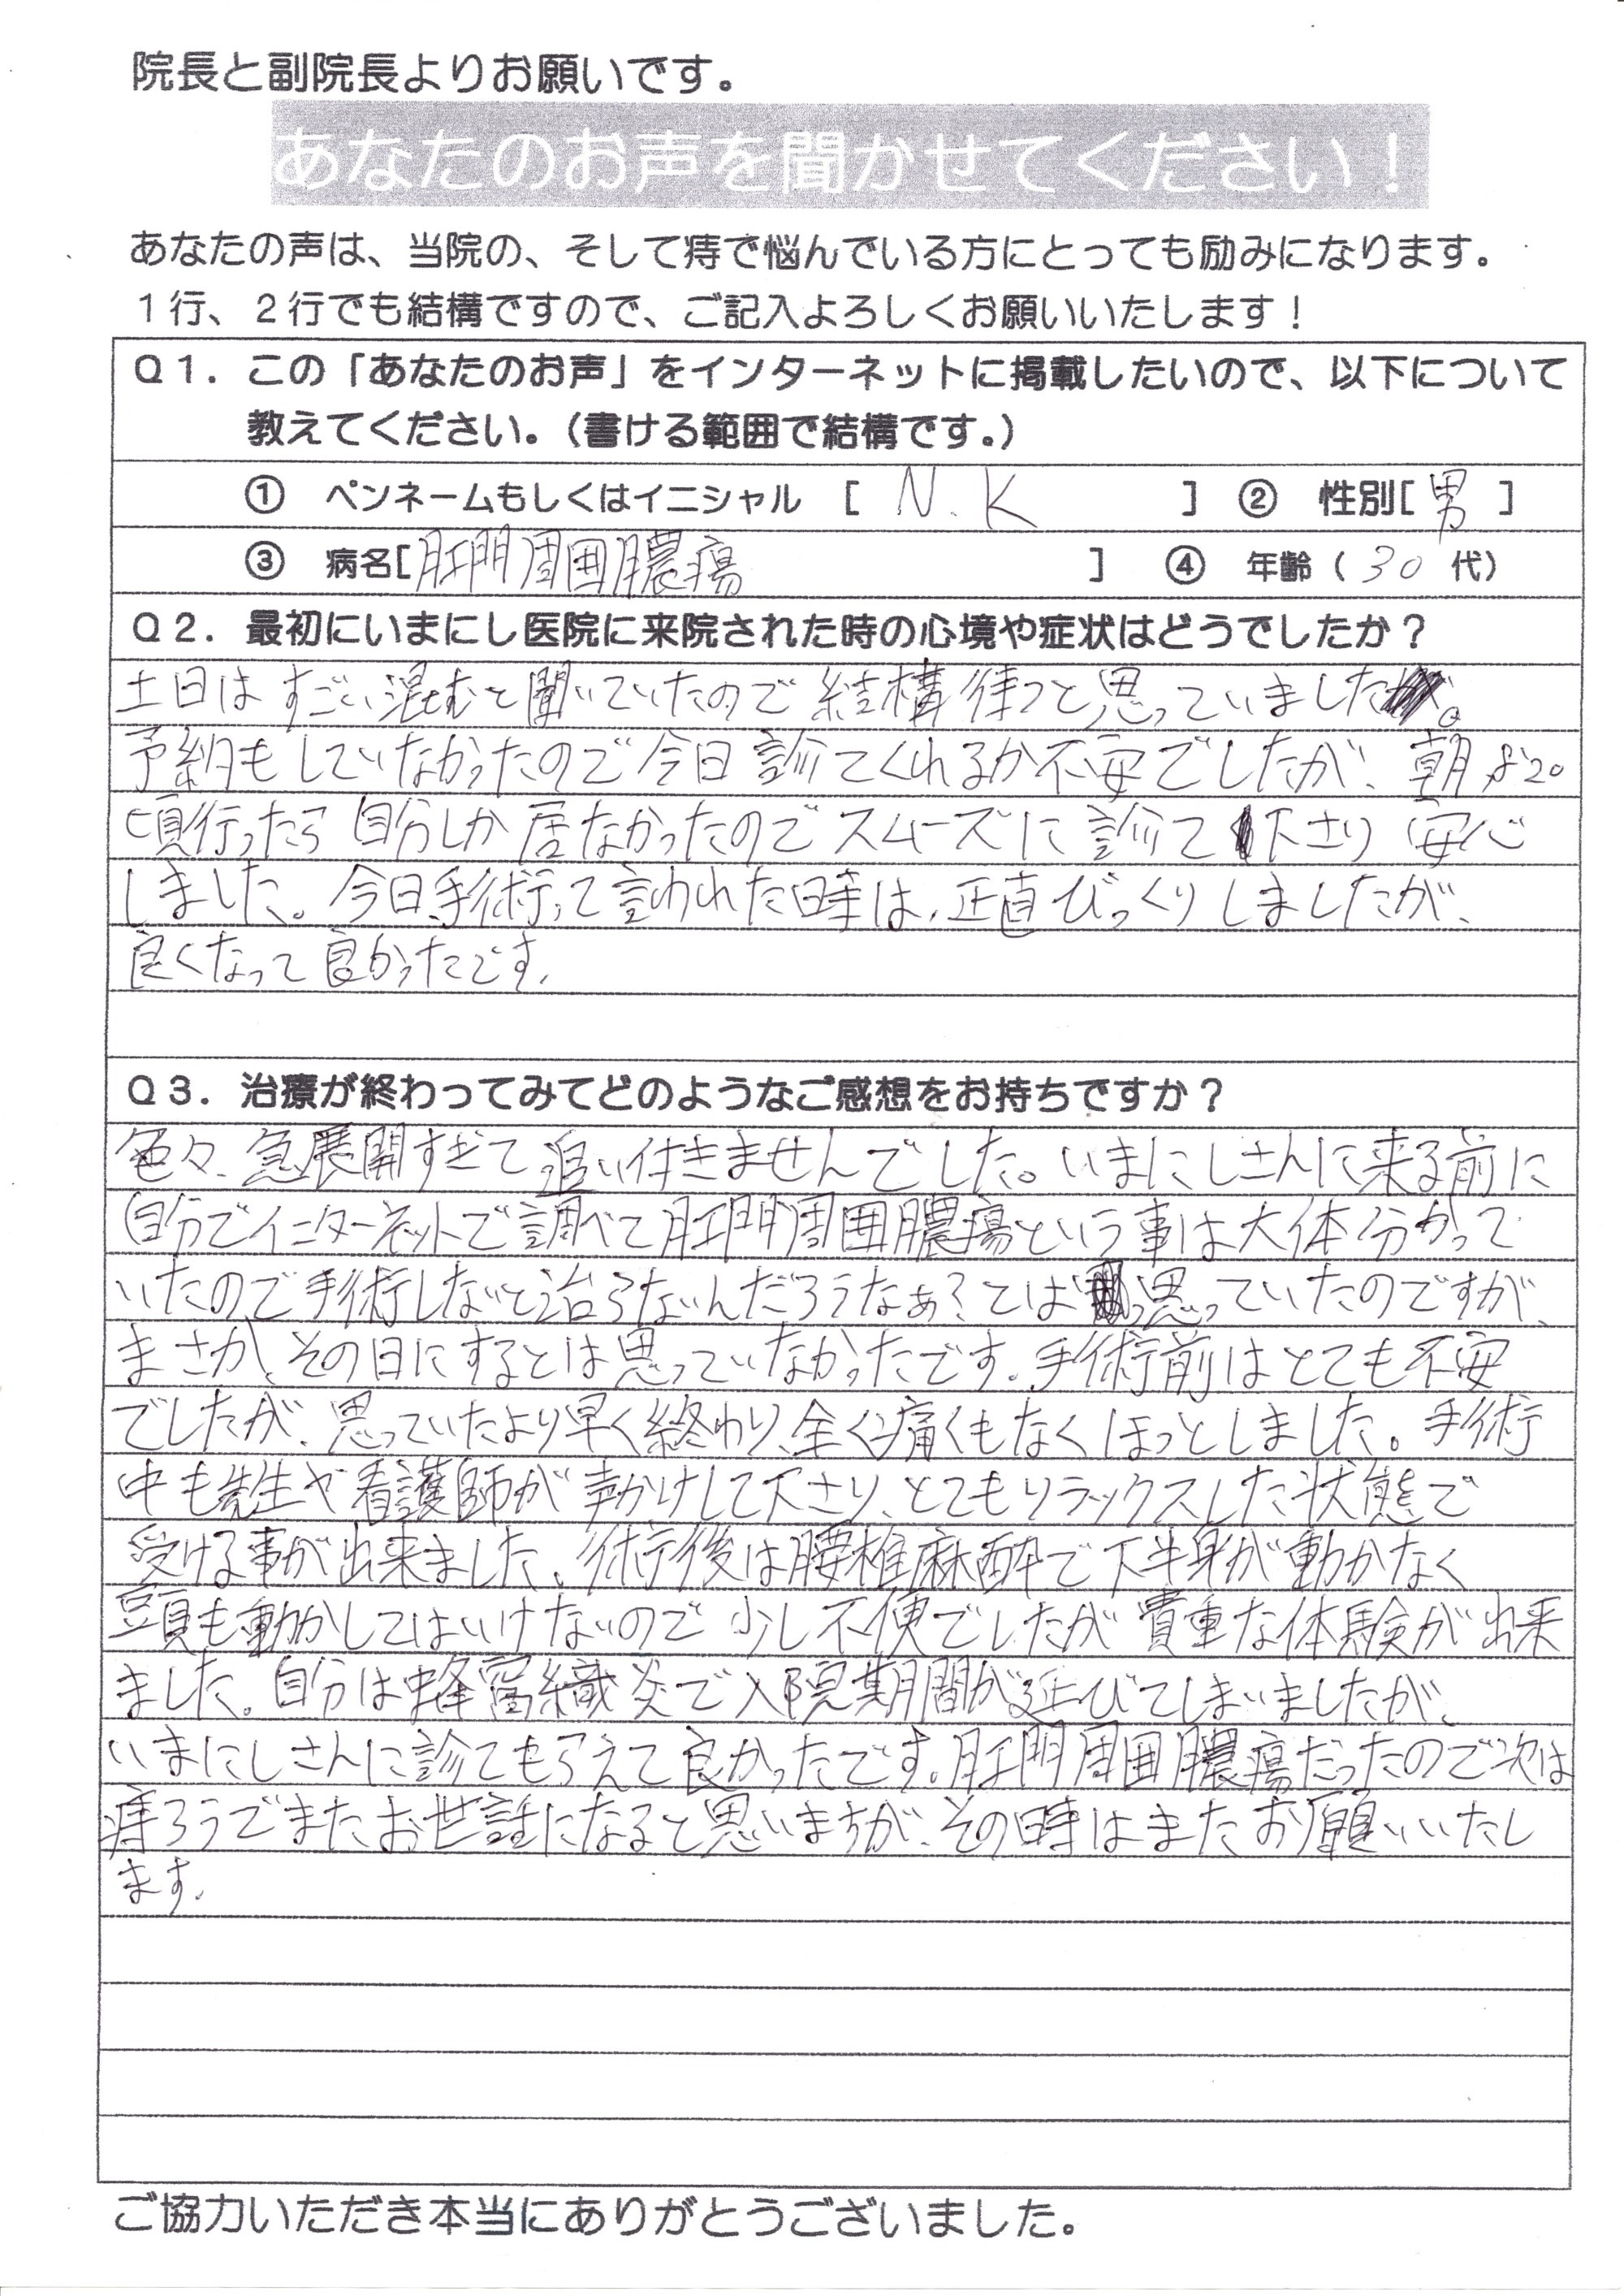 院長と副院長よりお願いです。
あなたのお声を聞かせてください！
あなたの声は、当院の、そして痔で悩んでいる方にとっても励みになります。
１行、２行でも結構ですので、ご記入よろしくお願いいたします！
Ｑ１．この「あなたのお声」をインターネットに掲載したいので、以下について
教えてください。（書ける範囲で結構です。）
① ペンネームもしくはイニシャル [ N.K ] ② 性別[ 男 ]
③ 病名[肛門周囲膿瘍 ] ④ 年齢（30 代）
Ｑ２．最初にいまにし医院に来院された時の心境や症状はどうでしたか？
土日はすごい混むと聞いていたので結構待つと思っていました。
予約もしていなかったので今日診てくれるか不安でしたが、朝8:20
頃行ったら自分しか居なかったのでスムーズに診て下さり安心
しました。今日手術って言われた時は、正直びっくりしましたが、
良くなって良かったです。
Ｑ３．治療が終わってみてどのようなご感想をお持ちですか？
色々、急展開すぎて追い付きませんでした。いまにしさんに来る前に
自分でインターネットで調べて肛門周囲膿瘍という事は大体分かって
いたので手術しないと治らないんだろうなぁ？とは思っていたのですが、
まさか、その日にするとは思っていなかったです。手術前はとても不安
でしたが、思っていたより早く終わり、全く痛くもなくほっとしました。手術
中も先生や看護師が声かけして下さり、とてもリラックスした状態で
受ける事が出来ました。術後は腰椎麻酔で下半身が動かなく
頭も動かしてはいけないので少し不便でしたが貴重な体験が出来
ました。自分は蜂窩織炎で入院期間が延びてしまいましたが、
いまにしさんに診てもらえて良かったです。肛門周囲膿瘍だったので次は
痔ろうでまたお世話になると思いますが、その時はまたお願いいたし
ます。
ご協力いただき本当にありがとうございました。